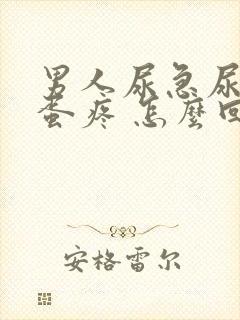 男人尿急尿
蛋疼 怎麼回
安格雷尔